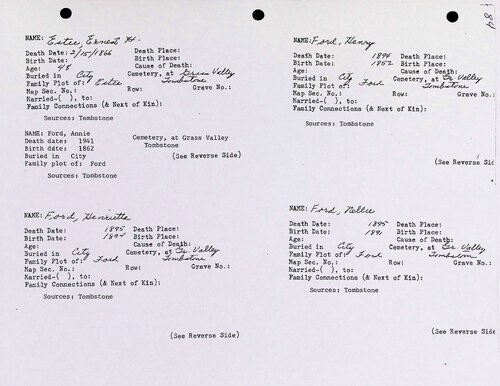 184
NAME: Estee, Ernest H.
Death Date: 2/15/1866 Death Place:
Birth Date: Birth Place:
Age: 48 Cause of Death:
Buried in City Cemetery, at Grass Valley
Family Plot of: Estee Tombstone
Map Sec. No.: Row: Grave No.:
Married-( ), to:
Family Connections (& Next of Kin):
Sources: Tombstone
NAME: Ford, Annie
Death date: 1941 Cemetery, at Grass Valley
Birth date: 1862 Tombstone
Buried in City
Family plot of: Ford (See Reverse Side)
Sources: Tombstone
NAME: Ford, Henry
Death Date: 1894 Death Place:
Birth Date: 1852 Birth Place:
Age: Cause of Death:
Buried in City Cemetery, at Gr. Valley
Family Plot of: Ford Tombstone
Map Sec. No.: Row: Grave No.:
Married-( ), to:
Family Connections (& Next of Kin):
Sources: Tombstone
(See Reverse Sid
NAME: Ford, Henrietta
Death Date: 1895 Death Place:
Birth Date: 1894 Birth Place:
Age: Cause of Death:
Buried in City Cemetery, at Gr. Valley
Family Plot of: Ford Tombstone
Map Sec. No.: Row: Grave No.:
Married-( ), to:
Family Connections (& Next of Kin):
Sources: Tombstone
(See Reverse Side)
NAME: Ford, Nellie
Death Date: 1895 Death Place:
Birth Date: 1891 Birth Place:
Age: Cause of Death:
Buried in City Cemetery, at Gr. Valley
Family Plot of: Ford Tombstone
Map Sec. No.: Row: Grave No.:
Married-( ), to:
Family Connections (& Next of Kin):
Sources: Tombstone
(See Reverse Side